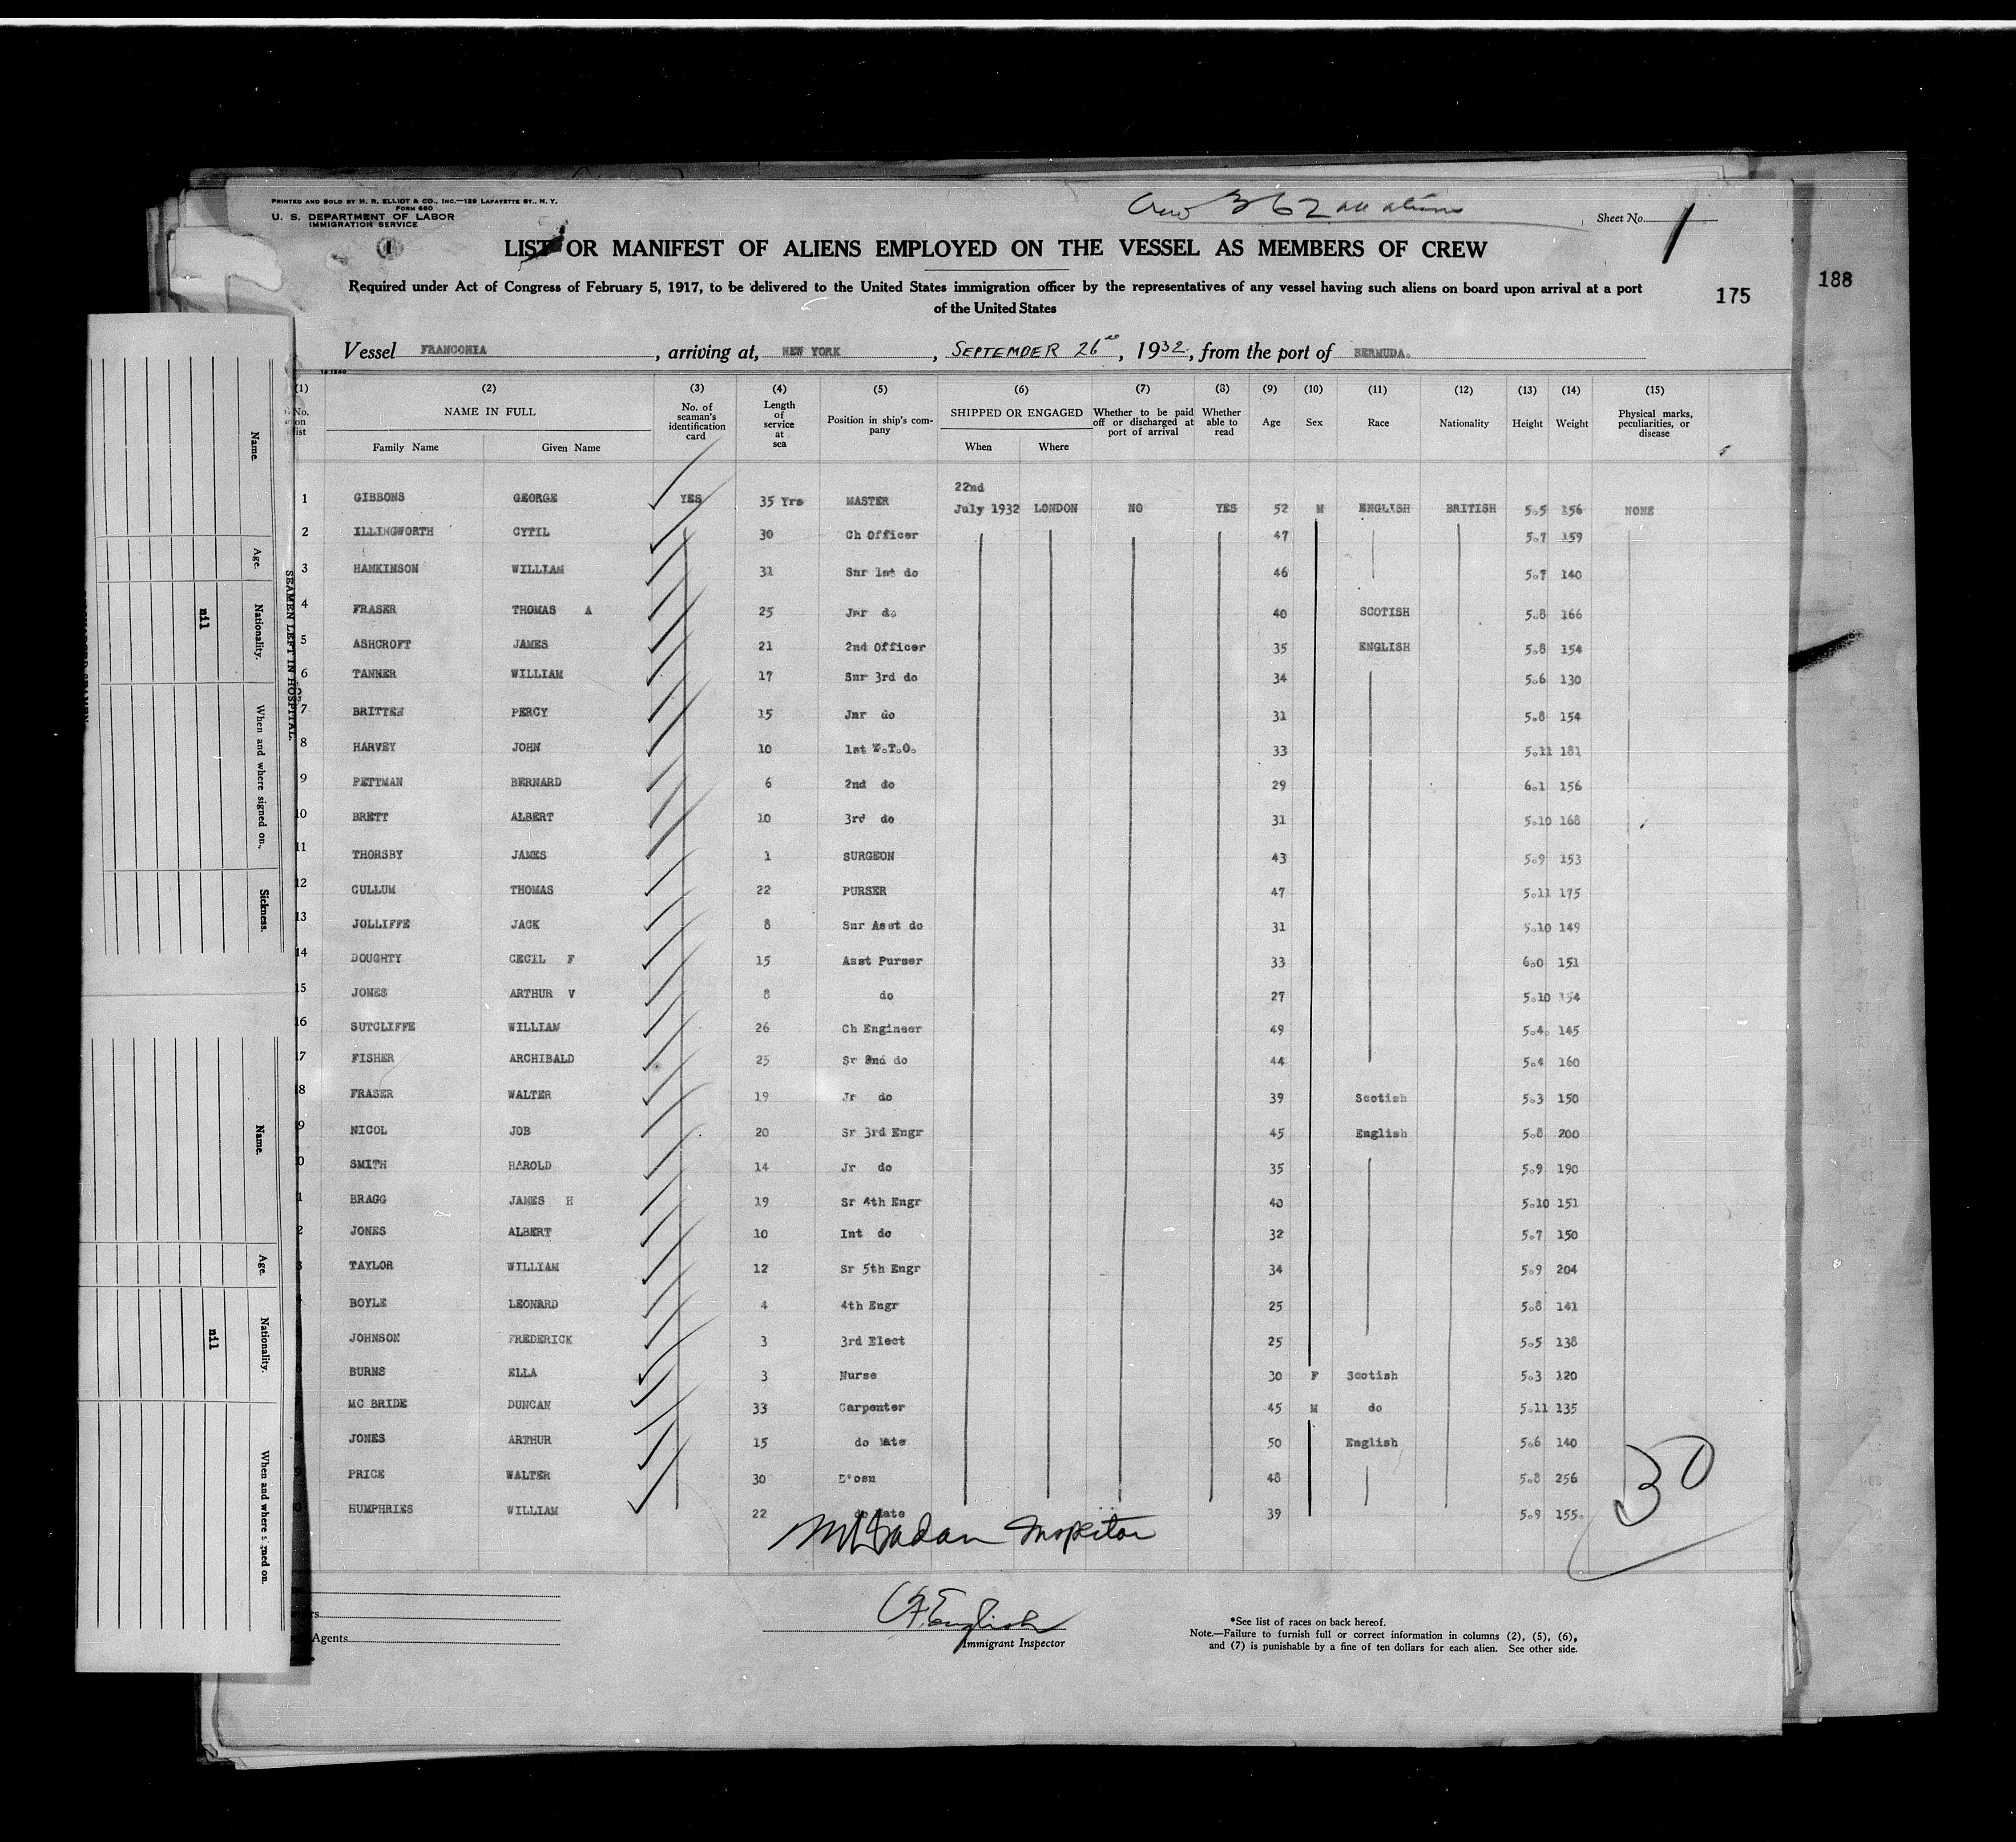 PRINTED AND SOLD BY H. R. ELLIOT & CO., INC.—129 LAFAYETTE ST., N. Y.
FORM 680
U. S. DEPARTMENT OF LABOR
IMMIGRATION SERVICE
Crew 362 all aliens
Sheet No. 1
LIST OR MANIFEST OF ALIENS EMPLOYED ON THE VESSEL AS MEMBERS OF CREW
Required under Act of Congress of February 5, 1917, to be delivered to the United States immigration officer by the representatives of any vessel having such aliens on board upon arrival at a port
of the United States
175
188
Vessel FRANCONIA, arriving at, NEW YORK, SEPTEMBER 26, 1932, from the port of BERMUDA.
(1) (2) (3) (4) (5) (6) (7) (8) (9) (10) (11) (12) (13) (14) (15)
No. on list NAME IN FULL Family Name Given Name No. of seaman's identification card Length of service at sea Position in ship's company SHIPPED OR ENGAGED When Where Whether to be paid off or discharged at port of arrival Whether able to read Age Sex Race Nationality Height Weight Physical marks, peculiarities, or disease
1 GIBBONS GEORGE YES 35 Yrs MASTER 22nd July 1932 LONDON NO YES 52 M ENGLISH BRITISH 5.5 156 NONE
2 ILLINGWORTH CYTIL 30 Ch Officer 47 5.7 159
3 HANKINSON WILLIAM 31 Snr 1st do 46 5.7 140
4 FRASER THOMAS A 25 Jnr do 40 SCOTISH 5.8 166
5 ASHCROFT JAMES 21 2nd Officer 35 ENGLISH 5.8 154
6 TANNER WILLIAM 17 Snr 3rd do 34 5.6 130
7 BRITTEN PERCY 15 Jnr do 31 5.8 154
8 HARVEY JOHN 10 1st W.T.O. 33 5.11 181
9 PETTMAN BERNARD 6 2nd do 29 6.1 156
10 BRETT ALBERT 10 3rd do 31 5.10 168
11 THORSBY JAMES 1 SURGEON 43 5.9 153
12 CULLUM THOMAS 22 PURSER 47 5.11 175
13 JOLLIFFE JACK 8 Snr Asst do 31 5.10 149
14 DOUGHTY CECIL F 15 Asst Purser 33 6.0 151
15 JONES ARTHUR V 8 do 27 5.10 154
16 SUTCLIFFE WILLIAM 26 Ch Engineer 49 5.4. 145
7 FISHER ARCHIBALD 25 Sr 2nd do 44 5.4 160
8 FRASER WALTER 19 Jr do 39 Scotish 5.3 150
9 NICOL JOB 20 Sr 3rd Engr 45 English 5.8 200
0 SMITH HAROLD 14 Jr do 35 5.9 190
1 BRAGG JAMES H 19 Sr 4th Engr 40 5.10 151
2 JONES ALBERT 10 Int do 32 5.7 150
3 TAYLOR WILLIAM 12 Sr 5th Engr 34 5.9 204
BOYLE LEONARD 4 4th Engr 25 5.8 141
JOHNSON FREDERICK 3 3rd Elect 25 5.5 138
BURNS ELLA 3 Nurse 30 F Scotish 5.3 120
MC BRIDE DUNCAN 33 Carpenter 45 M do 5.11 135
JONES ARTHUR 15 do Mate 50 English 5.6 140
9 PRICE WALTER 30 B'osn 48 5.8 256
0 HUMPHRIES WILLIAM 22 do Mate 39 5.9 155.
30
Inspector
English
Immigrant Inspector
Agents
*See list of races on back hereof.
Note.—Failure to furnish full or correct information in columns (2), (5), (6),
and (7) is punishable by a fine of ten dollars for each alien. See other side.
SEAMEN LEFT IN HOSPITAL.
Name. Age. Nationality. When and where signed on. Sickness.
nil
Name. Age. Nationality. When and where signed on.
nil